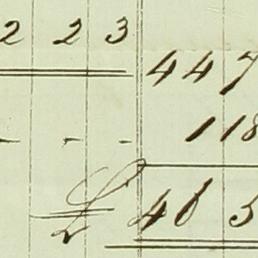 2 2 3
447
- - - 118
£ 40 5